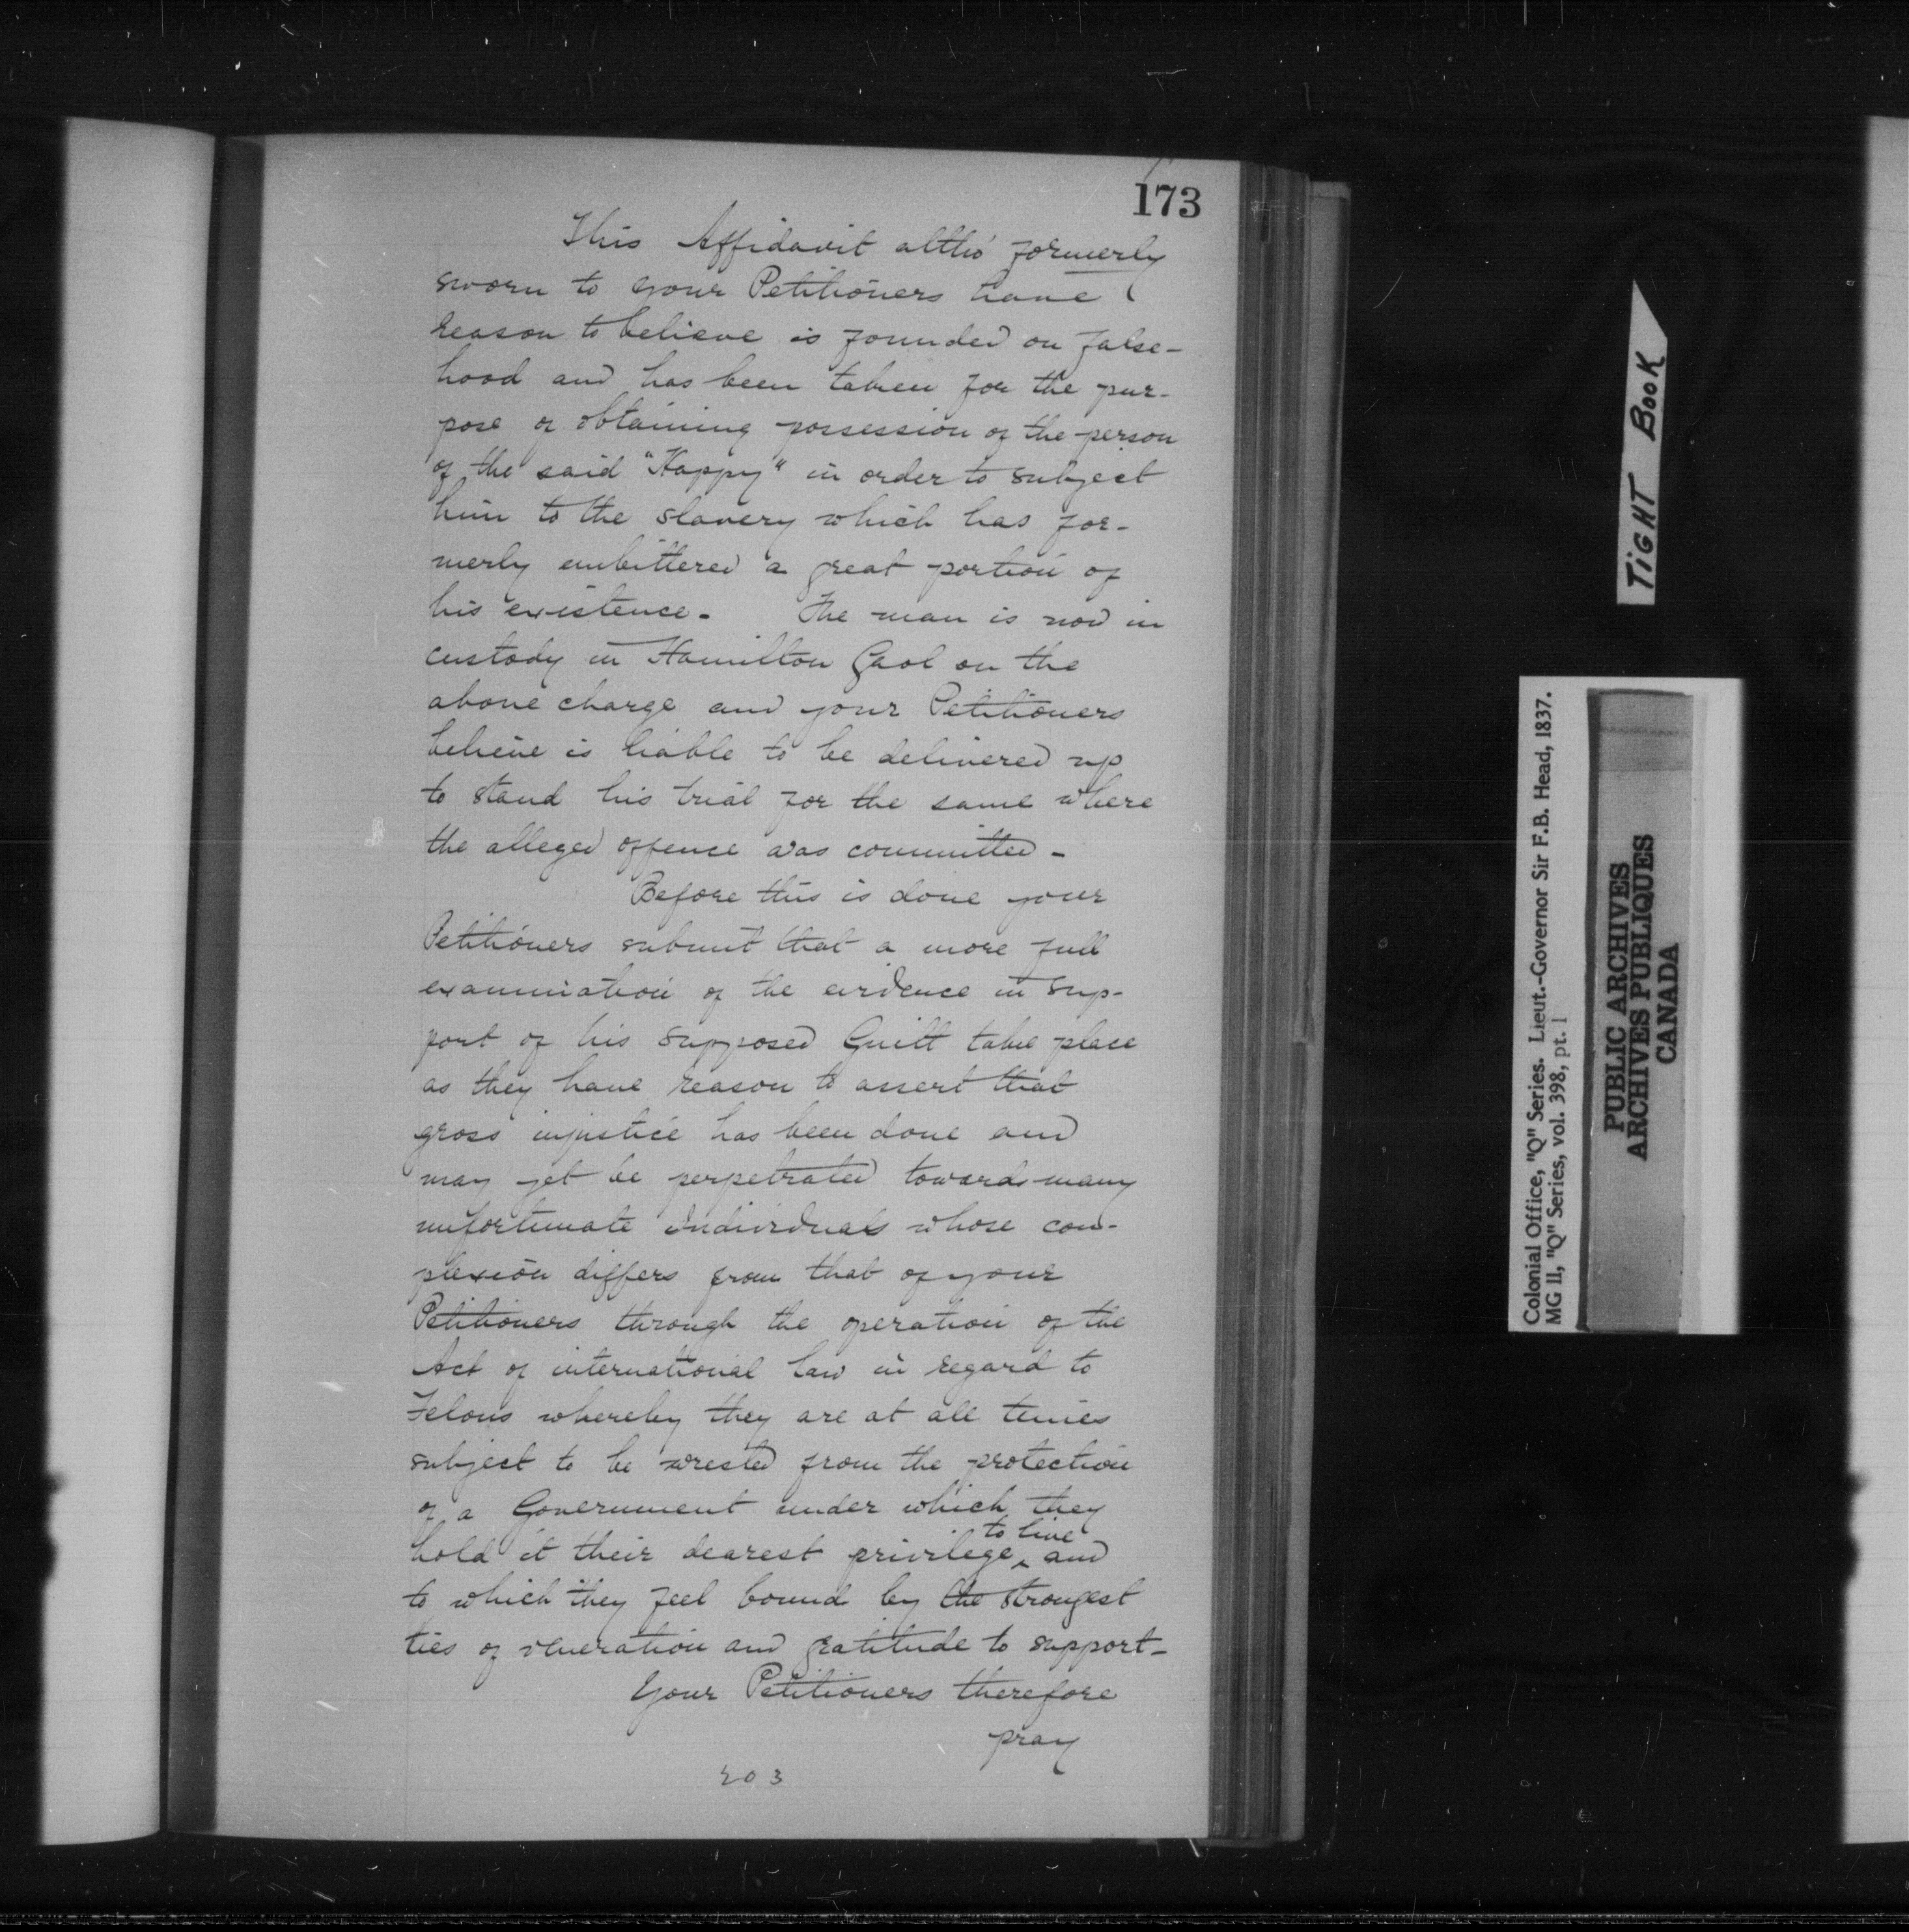 173
This Affidavit altho' formerly
sworn to your Petitioners have
reason to believe is founded on false-
hood and has been taken for the pur-
pose of obtaining possession of the person
of the said "Happy" in order to subject
him to the slavery which has for-
merly embittered a great portion of
his existence. The man is now in
custody in Hamilton Gaol on the
above charge and your Petitioners
believe is liable to be delivered up
to stand his trial for the same where
the alleged offence was committed -
Before this is done your
Petitioners submit that a more full
examination of the evidence in sup-
port of his supposed Guilt take place
as they have reason to assert that
gross injustice has been done and
may yet be perpetrated towards many
unfortunate Individuals whose com-
plexion differs from that of your
Petitioners through the operation of the
Act of international law in regard to
Felons whereby they are at all times
subject to be wrested from the protection
of a Government under which they
hold it their dearest privilege ^ to live and
to which they feel bound by the strongest
ties of veneration and gratitude to support -
Your Petitioners therefore
pray
203
TIGHT BOOK
Colonial Office, "Q" Series. Lieut.-Governor Sir F.B. Head, 1837.
MG 11, "Q" Series, vol. 398, pt. 1
PUBLIC ARCHIVES
ARCHIVES PUBLIQUES
CANADA